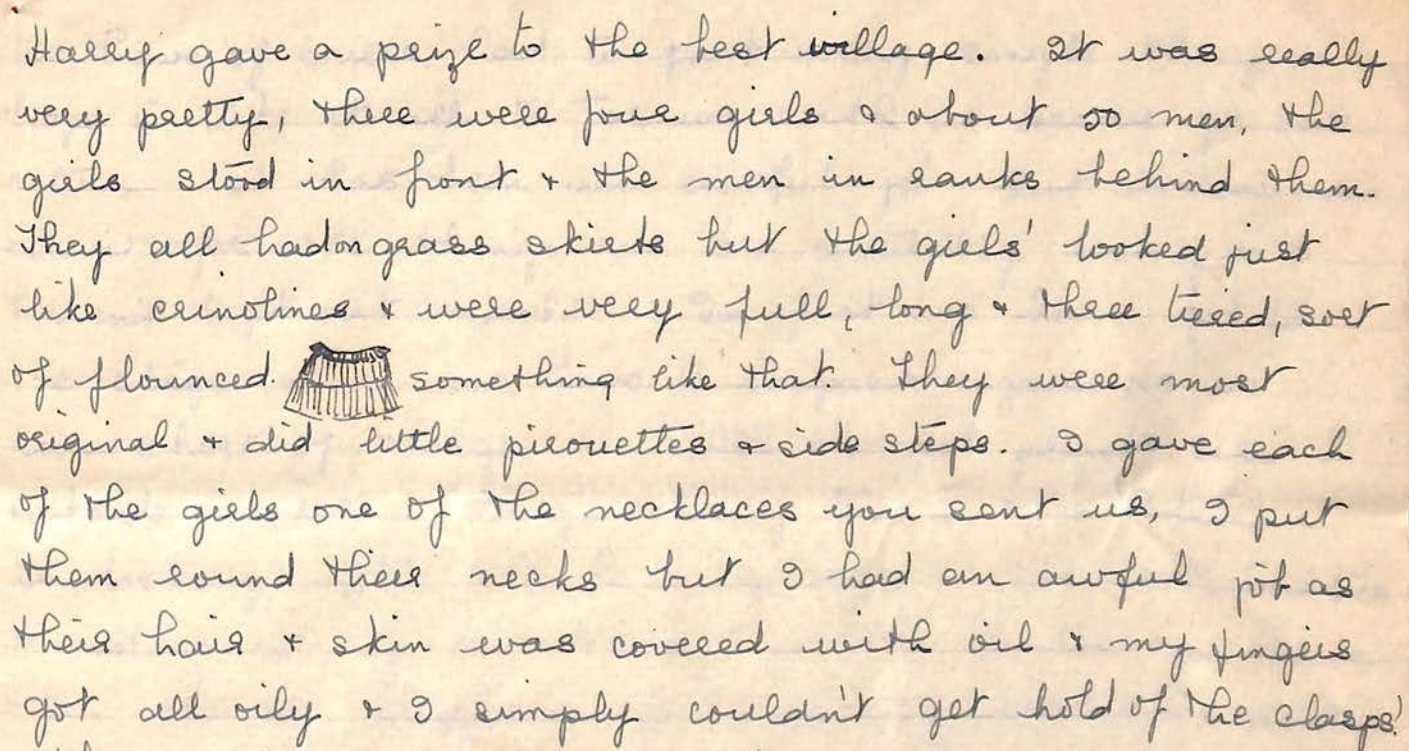 Harry gave a prize to the best village. It was really
very pretty, there were four girls & about 50 men, the
girls stood in front & the men in ranks behind them.
They all had on grass skirts but the girls' looked just
like crinolines & were very full, long & three tiered, sort
of flounced. something like that. They were most
original & did little pirouettes & side steps. I gave each
of the girls one of the necklaces you sent us, I put
them round their necks but I had an awful job as
their hair & skin was covered with oil & my fingers
got all oily & I simply couldn't get hold of the clasps!